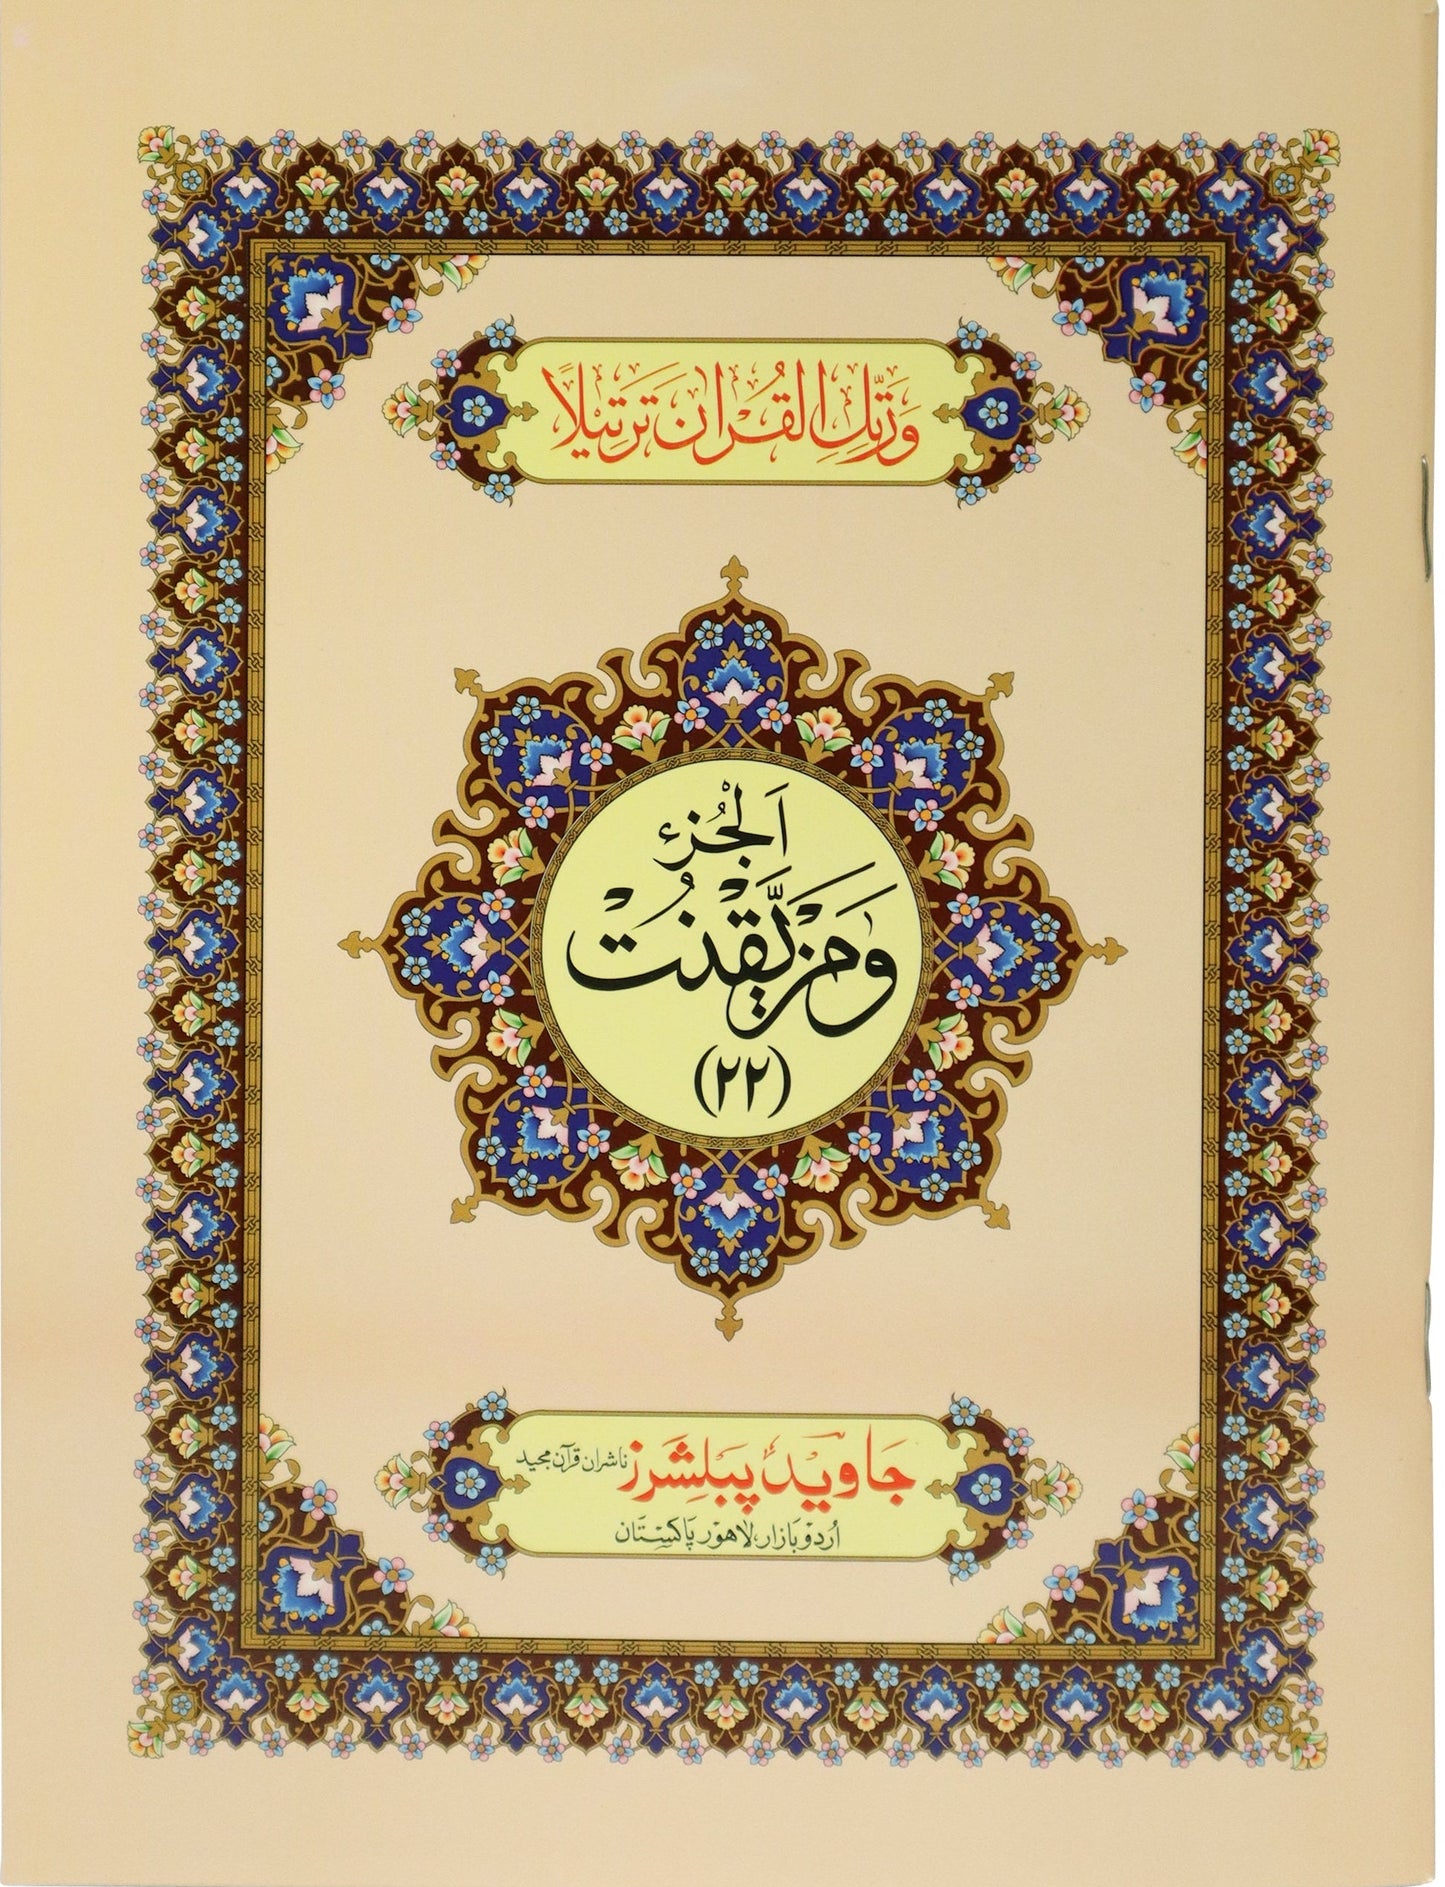 وَرَتِّلِ الْقُرْاٰنَ تَرْتِيْلًا
اَلْجُزْء
وَمَنْ يَّقْنُتْ
(٢٢)
جاوید پبلشرز ناشران قرآن مجید
اُردو بازار، لاھور پاکستان